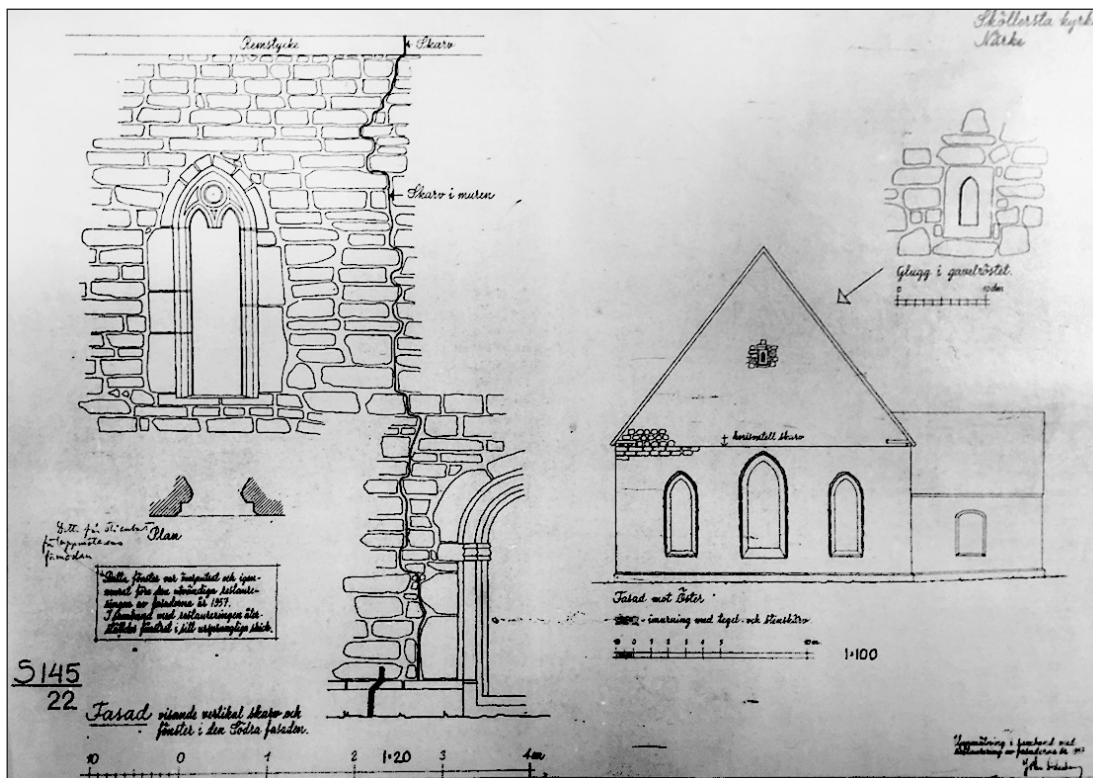 Sköllersta kyrka
Närke
Remstycke
Skarv
Skarv i muren
Glugg i gavelröstet.
0 10 dm
horisontell skarv
Plan
Detta fönster var insputsat och igen-
murat före den utvändiga restaure-
ringen av fasaderna år 1957.
I samband med restaureringen åter-
ställdes fönstret i sitt ursprungliga skick.
Fasad mot Öster
- imurning med tegel- och stenskärv
10 0 1 2 3 4 5 10 m
1:100
S145
22
Fasad visande vertikal skarv och
fönster i den Södra fasaden.
10 0 1 1:20 2 3 4 m
Uppmätning i samband med
restaurering av fasaderna år 1957